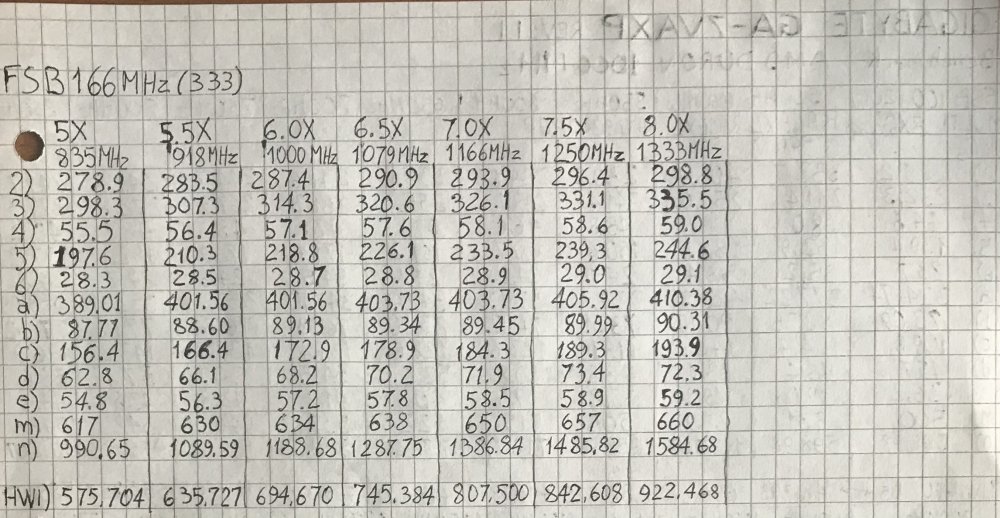 GIGABYTE GA-7VAXP
FSB 166MHz (333)
5X 5.5X 6.0X 6.5X 7.0X 7.5X 8.0X
835MHz 918MHz 1000MHz 1079MHz 1166MHz 1250MHz 1333MHz
2) 278.9 283.5 287.4 290.9 293.9 296.4 298.8
3) 298.3 307.3 314.3 320.6 326.1 331.1 335.5
4) 55.5 56.4 57.1 57.6 58.1 58.6 59.0
5) 197.6 210.3 218.8 226.1 233.5 239,3 244.6
6) 28.3 28.5 28.7 28.8 28.9 29.0 29.1
a) 389.01 401.56 401.56 403.73 403.73 405.92 410.38
b) 87.77 88.60 89.13 89.34 89.45 89.99 90.31
c) 156.4 166.4 172.9 178.9 184.3 189.3 193.9
d) 62.8 66.1 68.2 70.2 71.9 73.4 72.3
e) 54.8 56.3 57.2 57.8 58.5 58.9 59.2
m) 617 630 634 638 650 657 660
n) 990.65 1089.59 1188.68 1287.75 1386.84 1485.82 1584.68
HW1) 575,704 635,727 694,670 745.384 807,500 842,608 922,468